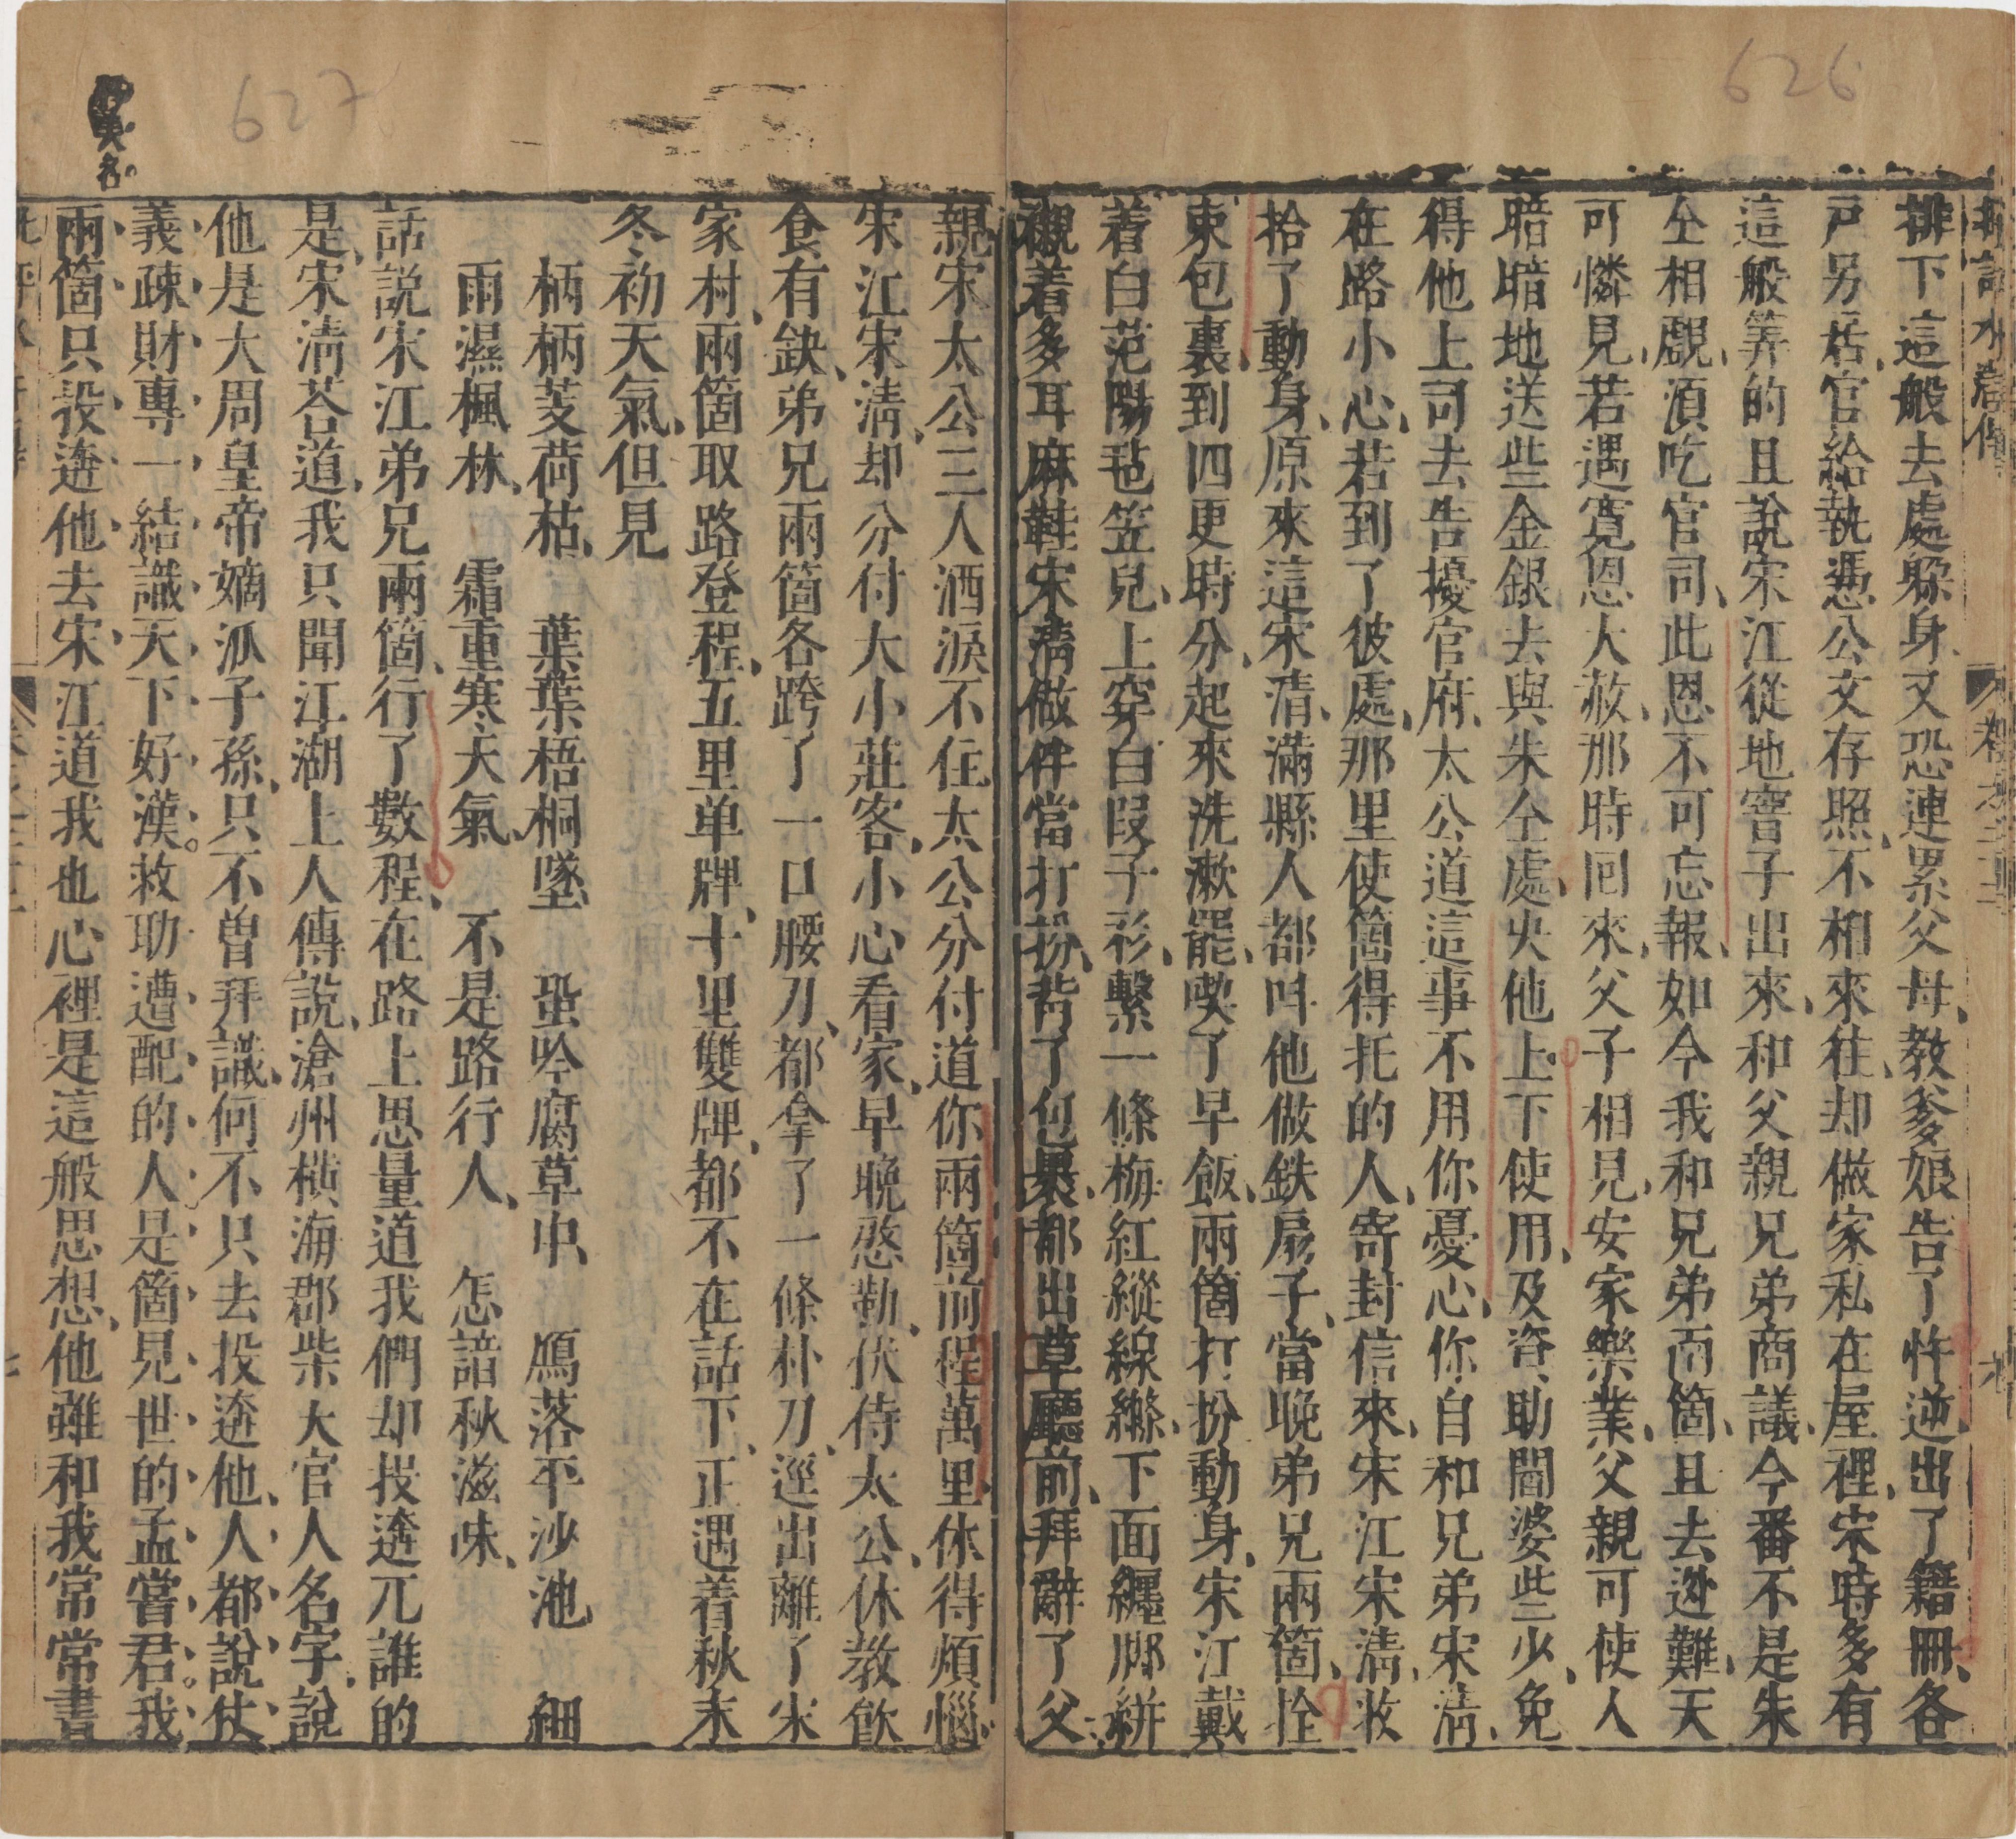 626
排下這般去處躱身又恐連累父母教爹娘告了忤逆出了籍冊各
戶另居官給執憑公文存照不相來往却做家私在屋裡宋時多有
這般筭的且說宋江從地窨子出來和父親兄弟商議今番不是朱
仝相覷湏吃官司此恩不可忘報如今我和兄弟両箇且去迯難天
可憐見若遇寛恩大赦那時囘來父子相見安家樂業父親可使人
暗暗地送些金銀去與朱仝處央他上下使用及資助閻婆些少免
得他上司去告擾官府太公道這事不用你憂心你自和兄弟宋淸
在路小心若到了彼處那里使箇得托的人寄封信來宋江宋淸收
拾了動身原來這宋清滿縣人都呌他做鉄扇子當晚弟兄兩箇拴
束包裏到四更時分起來洗漱罷喫了早飯兩箇打扮動身宋江戴
着白范陽毡笠兒上穿白叚子衫繫一條梅紅縱線縧下面纏脚絣
襯着多耳麻鞋宋淸做件當打扮背了包裹都出草廳前拜辭了父
627
親宋太公三人洒淚不住太公分付道你兩箇前程萬里休得煩惱
宋江宋淸却分付大小莊客小心看家早晚慇勤伏侍太公休教飲
食有缺弟兄兩箇各跨了一口腰刀都拿了一條朴刀逕出離了宋
家村兩箇取路登程五里单牌十里雙牌都不在話下正遇着秋末
冬初天氣但見
柄柄芰荷枯　葉葉梧桐墜　蛩吟腐草中　鴈落平沙池　細
雨濕楓林　霜重寒天氣　不是路行人　怎諳秋滋味
話說宋江弟兄兩箇行了數程在路上思量道我們却投逩兀誰的
是宋淸荅道我只聞江湖上人傳說滄州橫海郡柴大官人名字說
他是大周皇帝嫡泒子孫只不曾拜識何不只去投逩他人都說仗
義疎財專一結識天下好漢救助遭配的人是箇見世的孟嘗君我
兩箇只投逩他去宋江道我也心裡是這般思想他雖和我常常書